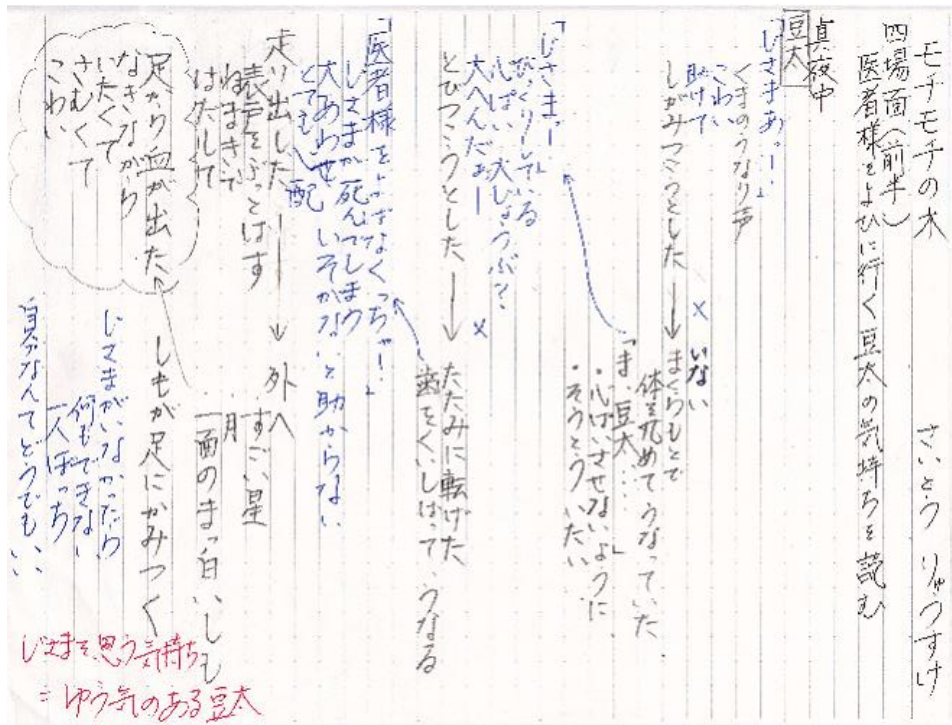 モチモチの木　さいとう　りゅうすけ
四場面(前半)
医者様をよびに行く豆太の気持ちを読む
真夜中
豆太
「じさまあっー!」
くまのうなり声
こわい
助けて
しがみつこうとした→まくらもとで
× いない
体を丸めてうなっていた
「ま、豆太……」
・心ぱいさせないように
・そうとういたい
「じさまっー」
びっくりしている
心ぱい 大じょうぶ?
大へんだぁー
とびつこうとした→たたみに転げた
×
歯をくいしばって、うなる
「医者様をよばなくっちゃー!」
じさまが死んでしまう
大あわせ いそがないと助からない
とても心配
走り出した→外へ
表戸をぶっとばす すごい星
ねまきで 月
はだしで 一面のまっ白いしも
足から血が出た しもが足にかみつく
なきながら
いたくて
さむくて
こわい
じさまがいなかったら
何もできない
一人ぼっち
自分なんてどうでもいい
じさまを思う気持ち
=ゆう気のある豆太